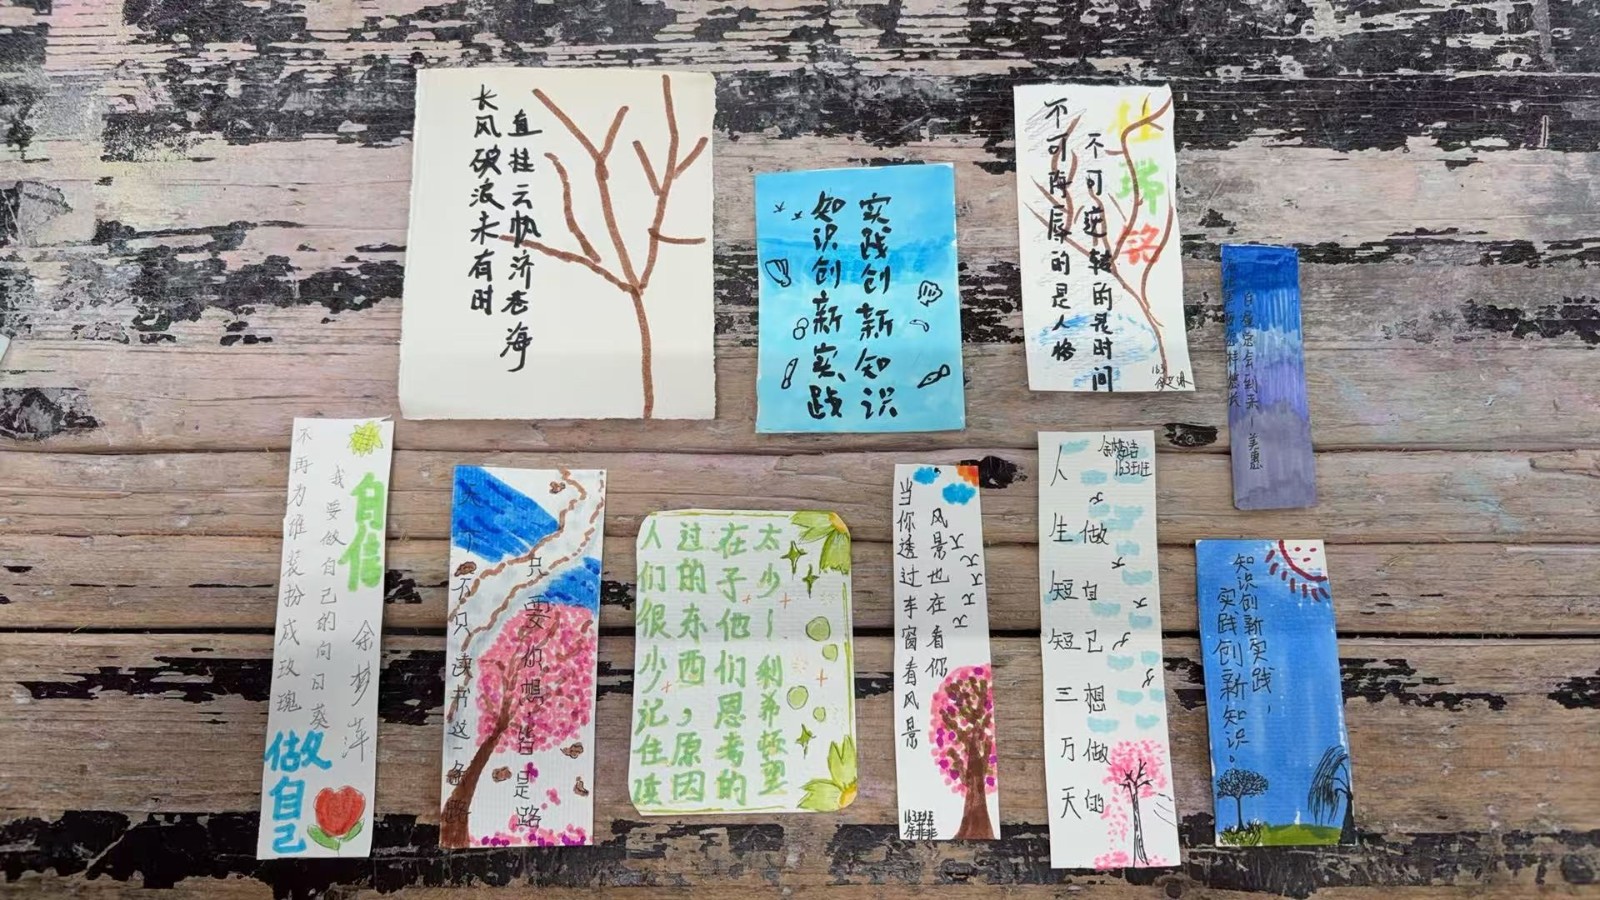 长风破浪未有时
直挂云帆济苍海
知识创新实践
实践创新知识
不可侮辱的是人格
不可逆转的是时间
杜瑞铭
163
总会到来—美惠
不再为难装扮成玫瑰
我要做自己的向日葵
自信
余梦萍
做自己
天下不只读书这一条路
只要你想皆是路
人们很少记住读
过的东西，原因
在子他们思考的
太少—希顿
当你透过车窗看风景
风景也在看你
163班
人生短短三万天
做自己想做的
余梦洁
163班
知识创新实践，
实践创新知识。